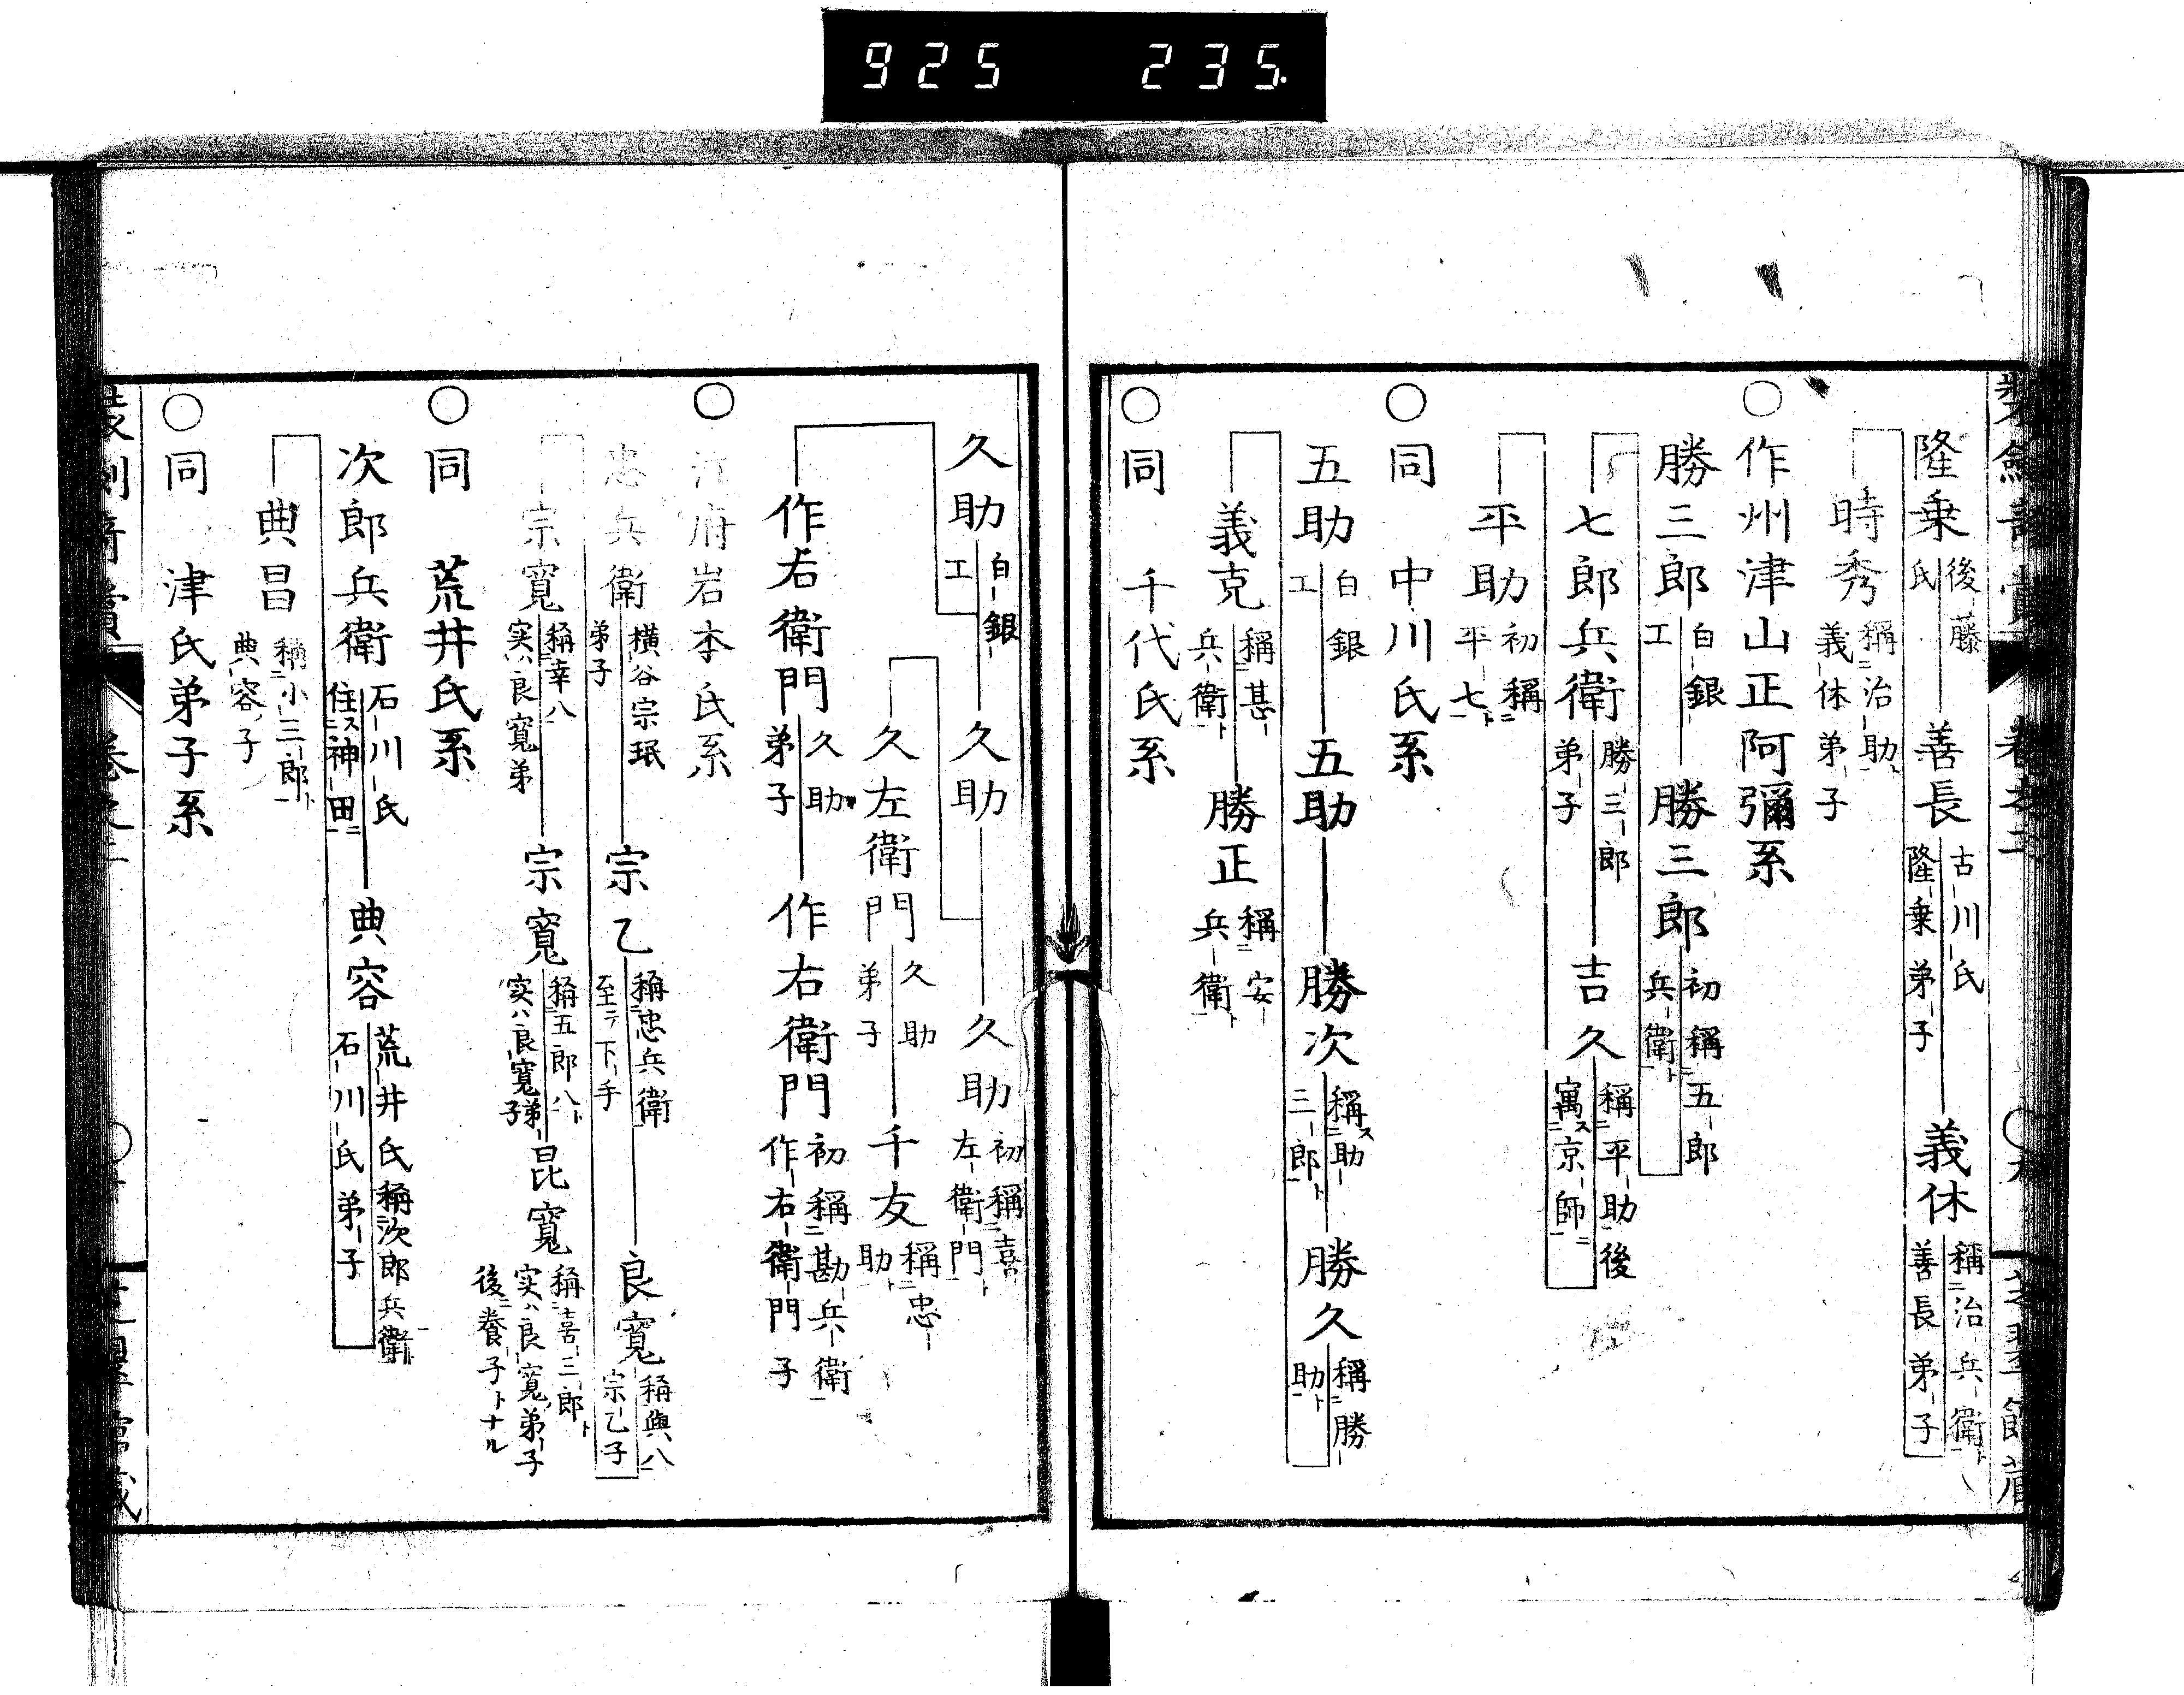 925 235
隆乗 後藤氏 善長 古川氏隆乗弟子 義休 稱二治兵衛一ト善長弟子
時秀 稱二治助一ト義休弟子
○作州津山正阿彌系
勝三郎 白銀工 勝三郎 初稱二五郎兵衛一ト
七郎兵衛 勝三郎弟子 吉久 稱二平助一後寓二ス京師一ニ
平助 初稱二平七一ト
○同 中川氏系
五助 白銀工 五助 勝次 稱二ス助三郎一ト 勝久 稱二勝助一ト
義克 稱二甚兵衛一ト 勝正 稱二安兵衛一ト
○同 千代氏系
久助 白銀工 久助 久助 初稱二喜左衛門一ト
久左衛門 久助弟子 千友 稱二忠助一ト
作右衛門 久助弟子 作右衛門 初稱二勘兵衛一作右衛門子
○江府岩本氏系
忠兵衛 横谷宗珉弟子 宗乙 稱二忠兵衛一至テ下手 良寛 稱與八宗乙子
宗寛 稱二幸八一実ハ良寛弟 宗寛 稱二五郎八一ト実ハ良寛弟子 昆寛 稱二喜三郎一ト実ハ良寛弟子後ニ養子トナル
○同 荒井氏系
次郎兵衛 石川氏住二ス神田一ニ 典容 荒井氏稱二次郎兵衛一石川氏弟子
典昌 稱二小三郎一ト典容ノ子
○同 津氏弟子系